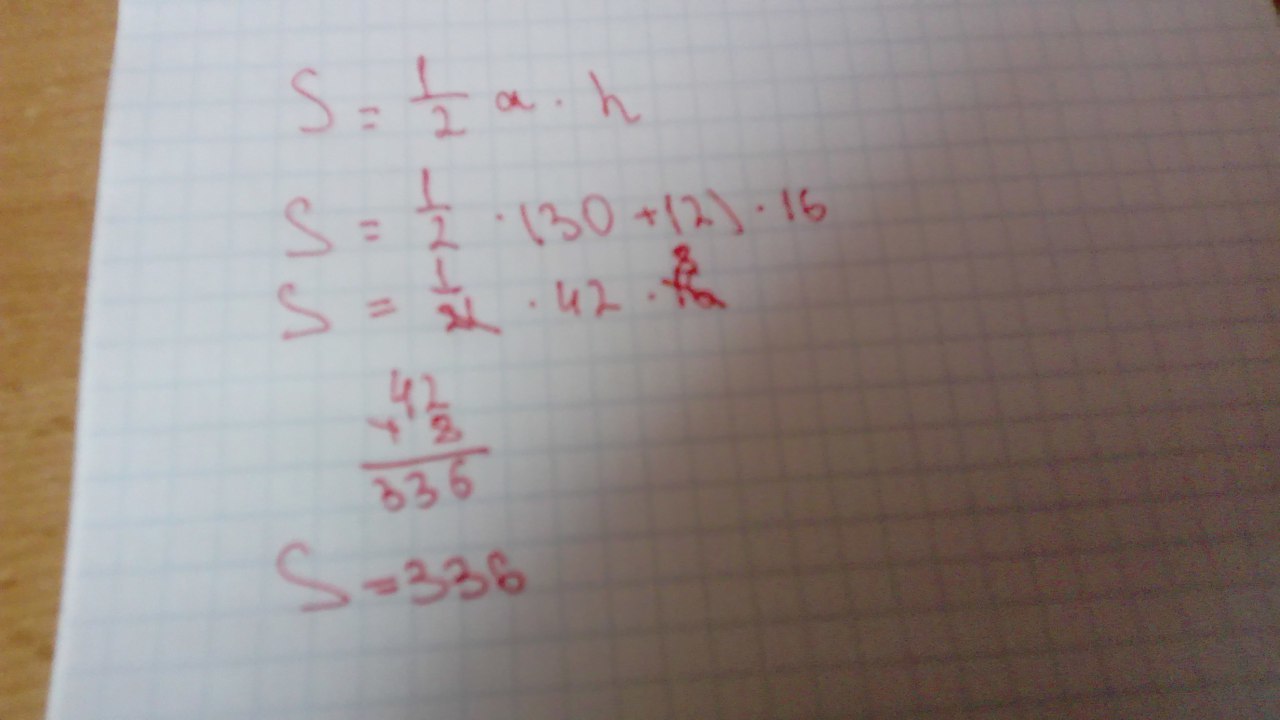 S = 1/2 a · h
S = 1/2 · (30 + 12) · 16
S = 1/2 · 42 · 16 8
42
× 8
336
S = 336